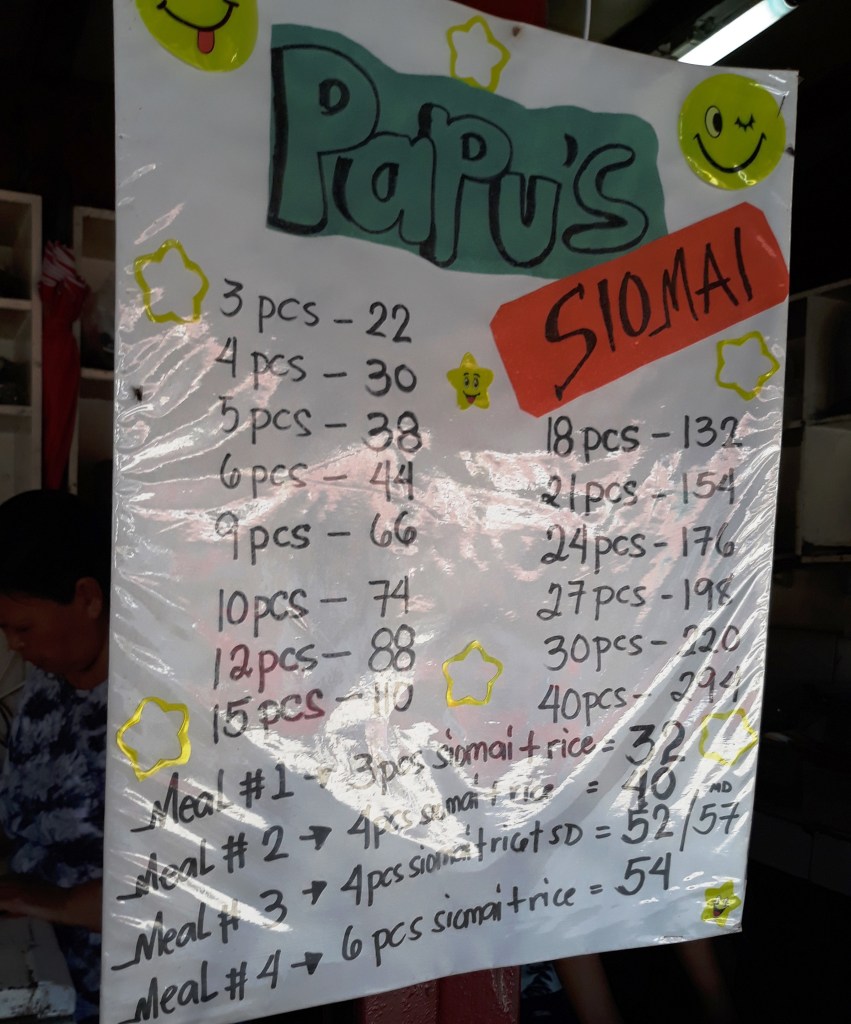 Papu's
SIOMAI
3 pcs - 22
4 pcs - 30
5 pcs - 38
6 pcs - 44
9 pcs - 66
10 pcs - 74
12 pcs - 88
15 pcs - 110
18 pcs - 132
21 pcs - 154
24 pcs - 176
27 pcs - 198
30 pcs - 220
40 pcs - 294
Meal #1 → 3 pcs siomai + rice = 32
Meal #2 → 4 pcs siomai + rice = 40
Meal #3 → 4 pcs siomai + rice + SD = 52/57 MD
Meal #4 → 6 pcs siomai + rice = 54